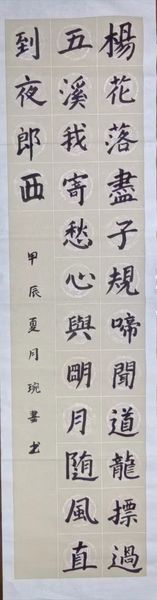 楊花落盡子規啼聞道龍摽過
五溪我寄愁心與朙月随風直
到夜郎西
甲辰夏月琬書